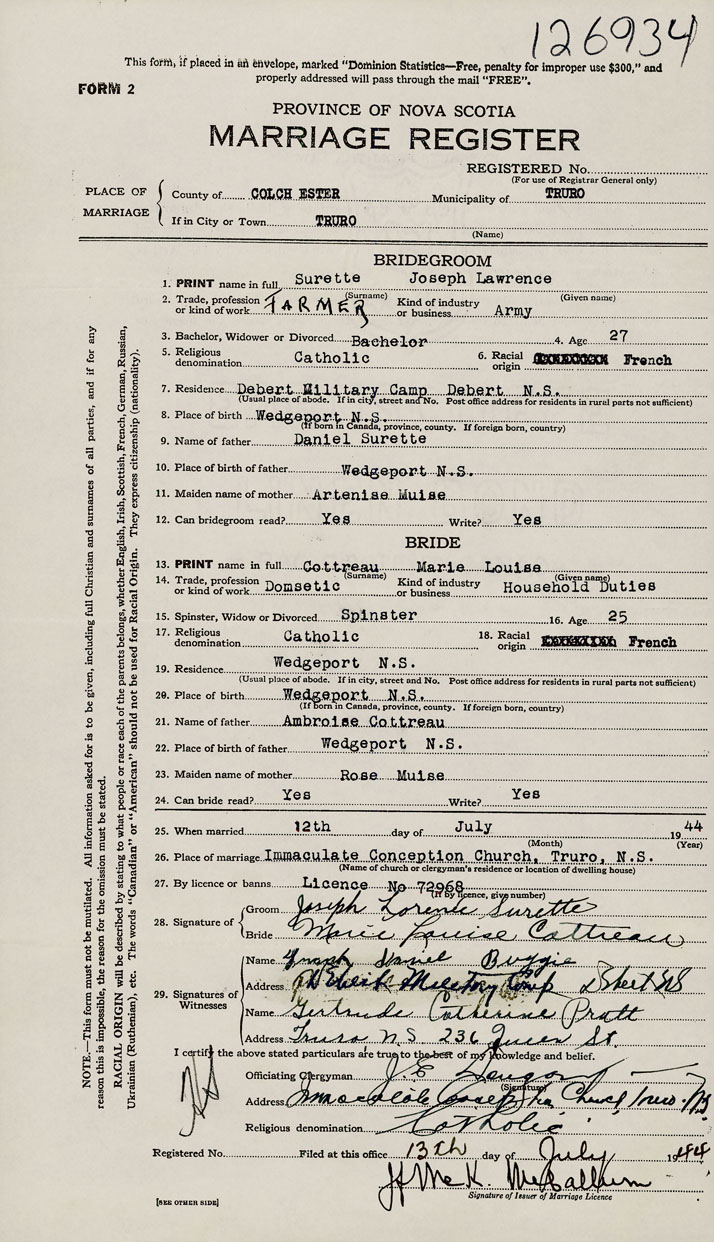 126934
This form, if placed in an envelope, marked "Dominion Statistics—Free, penalty for improper use $300," and
properly addressed will pass through the mail "FREE".
FORM 2
PROVINCE OF NOVA SCOTIA
MARRIAGE REGISTER
REGISTERED No.
(For use of Registrar General only)
PLACE OF MARRIAGE
County of COLCH ESTER Municipality of TRURO
If in City or Town TRURO
(Name)
BRIDEGROOM
1. PRINT name in full Surette Joseph Lawrence
(Surname) (Given name)
2. Trade, profession or kind of work FARMER Kind of industry or business Army
3. Bachelor, Widower or Divorced Bachelor 4. Age 27
5. Religious denomination Catholic 6. Racial origin French
7. Residence Debert Military Camp Debert N.S.
(Usual place of abode. If in city, street and No. Post office address for residents in rural parts not sufficient)
8. Place of birth Wedgeport N.S.
(If born in Canada, province, county. If foreign born, country)
9. Name of father Daniel Surette
10. Place of birth of father Wedgeport N.S.
11. Maiden name of mother Artenise Muise
12. Can bridegroom read? Yes Write? Yes
BRIDE
13. PRINT name in full Cottreau Marie Louise
(Surname) (Given name)
14. Trade, profession or kind of work Domsetic Kind of industry or business Household Duties
15. Spinster, Widow or Divorced Spinster 16. Age 25
17. Religious denomination Catholic 18. Racial origin French
19. Residence Wedgeport N.S.
(Usual place of abode. If in city, street and No. Post office address for residents in rural parts not sufficient)
20. Place of birth Wedgeport N.S.
(If born in Canada, province, county. If foreign born, country)
21. Name of father Ambroise Cottreau
22. Place of birth of father Wedgeport N.S.
23. Maiden name of mother Rose Muise
24. Can bride read? Yes Write? Yes
25. When married 12th day of July 1944
(Month) (Year)
26. Place of marriage Immaculate Conception Church, Truro, N.S.
(Name of church or clergyman's residence or location of dwelling house)
27. By licence or banns Licence No 72968
(If by licence, give number)
28. Signature of
Groom Joseph Lorence Surette
Bride Marie Louise Cottreau
29. Signatures of Witnesses
Name Joseph Daniel Buggie
Address Military Camp Debert NS
Name Gertrude Catherine Pratt
Address Truro N S 236 Queen St.
I certify the above stated particulars are true to the best of my knowledge and belief.
Officiating Clergyman J. E.
(Signature)
Address Immaculate Church, Truro. N.S.
Religious denomination Catholic
Registered No. Filed at this office 13th day of July 1944
McCallum
Signature of Issuer of Marriage Licence
[SEE OTHER SIDE]
NOTE.—This form must not be mutilated. All information asked for is to be given, including full Christian and surnames of all parties, and if for any
reason this is impossible, the reason for the omission must be stated.
RACIAL ORIGIN will be described by stating to what people or race each of the parents belongs, whether English, Irish, Scottish, French, German, Russian,
Ukrainian (Ruthenian), etc. The words "Canadian" or "American" should not be used for Racial Origin. They express citizenship (nationality).